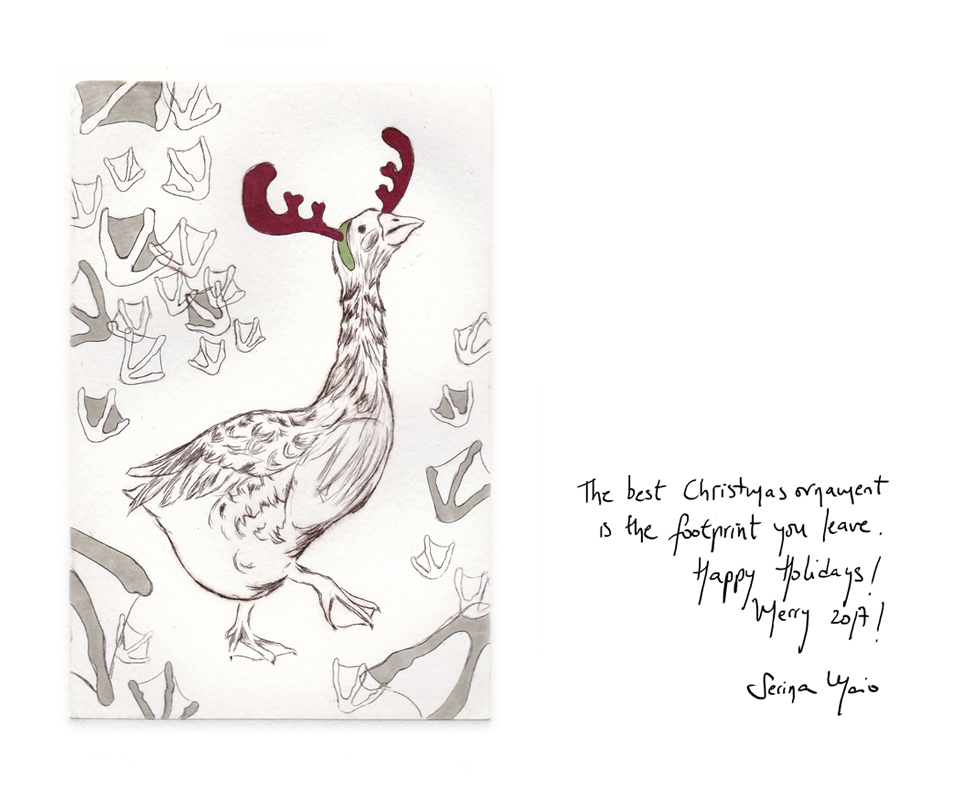 The best Christmas ornament
is the footprint you leave.
Happy Holidays!
Merry 2017!
Serina Maio